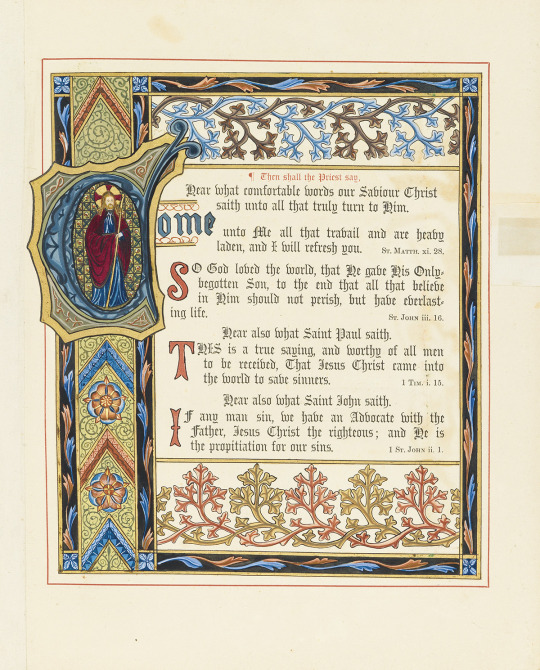 ¶ Then shall the Priest say,
Hear what comfortable words our Saviour Christ
saith unto all that truly turn to Him.
Come
unto Me all that travail and are heavy
laden, and I will refresh you. St. Matth. xi. 28.
SO God loved the world, that He gave His Only-
begotten Son, to the end that all that believe
in Him should not perish, but have everlast-
ing life. St. John iii. 16.
Hear also what Saint Paul saith.
THIS is a true saying, and worthy of all men
to be received, That Jesus Christ came into
the world to save sinners. 1 Tim. i. 15.
Hear also what Saint John saith.
IF any man sin, we have an Advocate with the
Father, Jesus Christ the righteous; and He is
the propitiation for our sins. 1 St. John ii. 1.